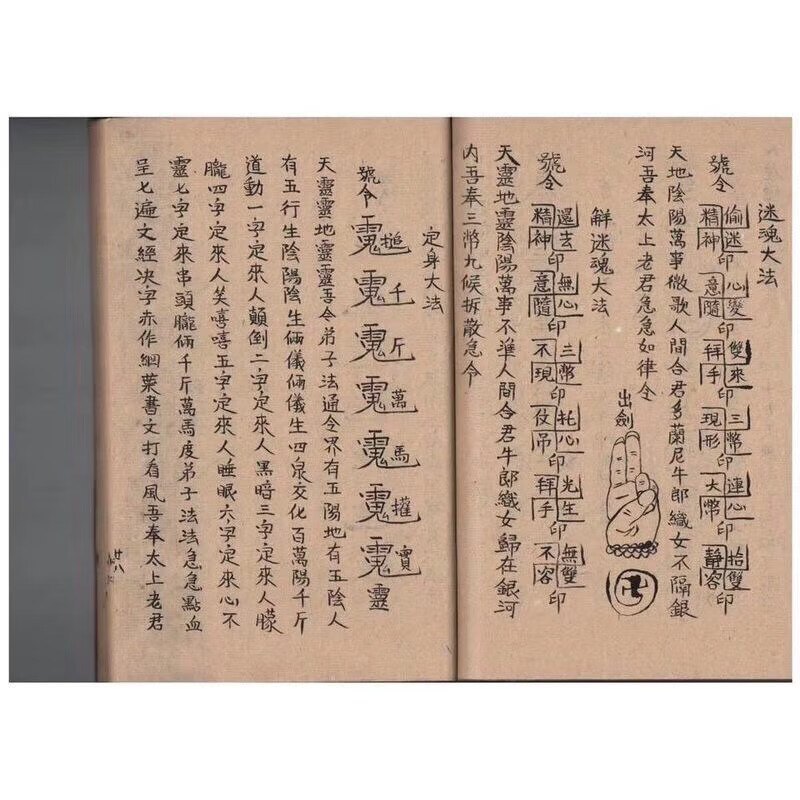 迷魂大法
號令 偷迷精神印 心變意隨印 雙來拜手印 三幣現形印 連心大幣印 抬雙靜容印
天地陰陽萬事微歌人間合君多蘭尼牛郎織女不隔銀
河吾奉太上老君急急如律令
出劍
卍
解迷魂大法
號令 還去精神印 無心意隨印 三幣不現印 托心仗吊印 光生拜手印 無雙不容印
天靈地靈陰陽萬事不準人間合君牛郎織女歸在銀河
內吾奉三幣九候拆散急令
定身大法
號令 千斤萬馬 靈
天靈靈地靈靈吾令弟子法通令界有五陽地有五陰人
有五行生陰陽陰生倆儀倆儀生四泉交化百萬陽千斤
道動一字定來人顛倒二字定來人黑暗三字定來人朦
朧四字定來人笑嘻嘻五字定來人睡眠六字定來心不
靈七字定來串頭朧倆千斤萬馬度弟子法法急急點血
呈七遍文經決字赤作綱葉書文打看風吾奉太上老君
廿八